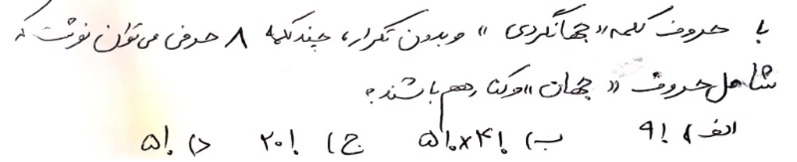 با حروف کلمه «جهانگردی» و بدون تکرار، چند کلمه ۸ حرفی می‌توان نوشت که
شامل حروف «جهان» و کنار هم باشند؟
الف) ۹! ب) ۵!×۴! ج) ۲۰! د) ۵!